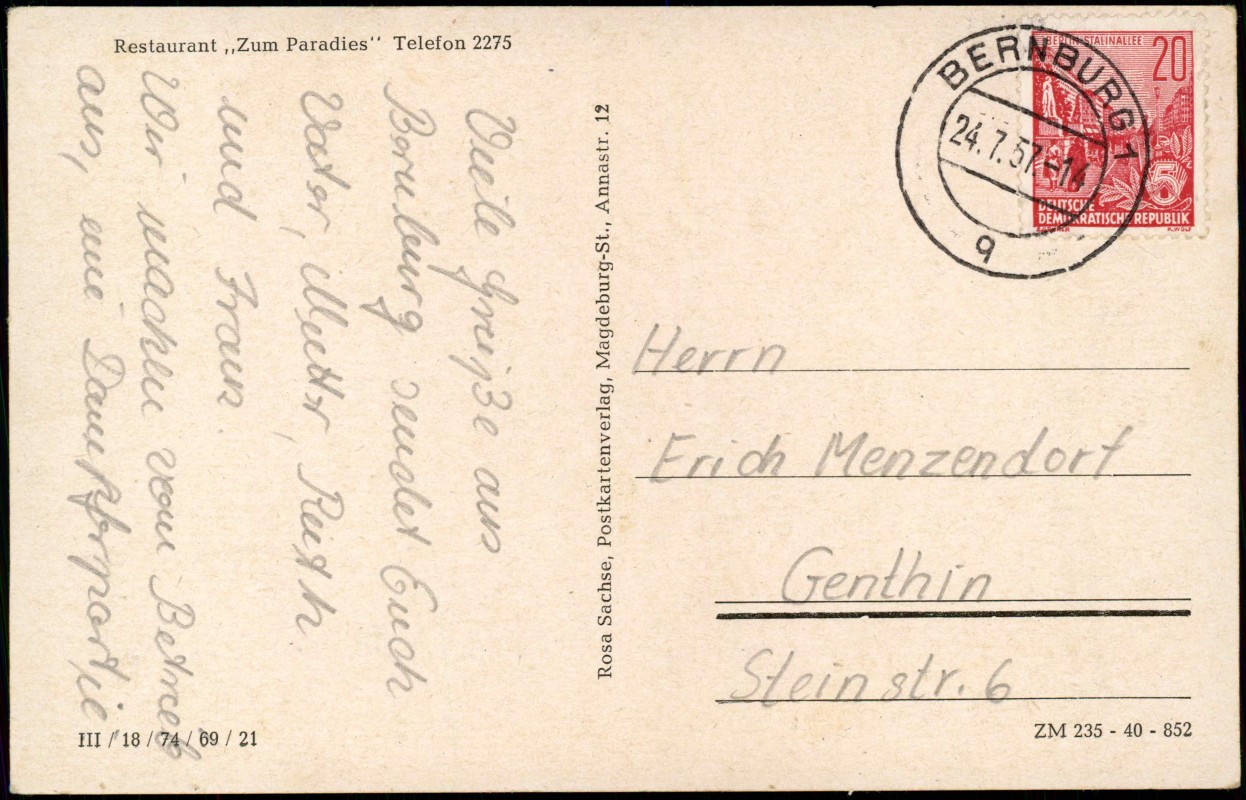 Restaurant „Zum Paradies“ Telefon 2275
Viele Grüße aus
Bernburg sendet Euch
Vater, Mutter, Ruth
und Frank.
Wir machen vom Betrieb
aus, eine Dampferpartie
III / 18 / 74 / 69 / 21
Rosa Sachse, Postkartenverlag, Magdeburg-St., Annastr. 12
BERNBURG 1
24.7.57.-14
q
BERLIN-STALINALLEE
20
5
DEUTSCHE
DEMOKRATISCHE REPUBLIK
Herrn
Erich Menzendorf
Genthin
Steinstr. 6
ZM 235 - 40 - 852